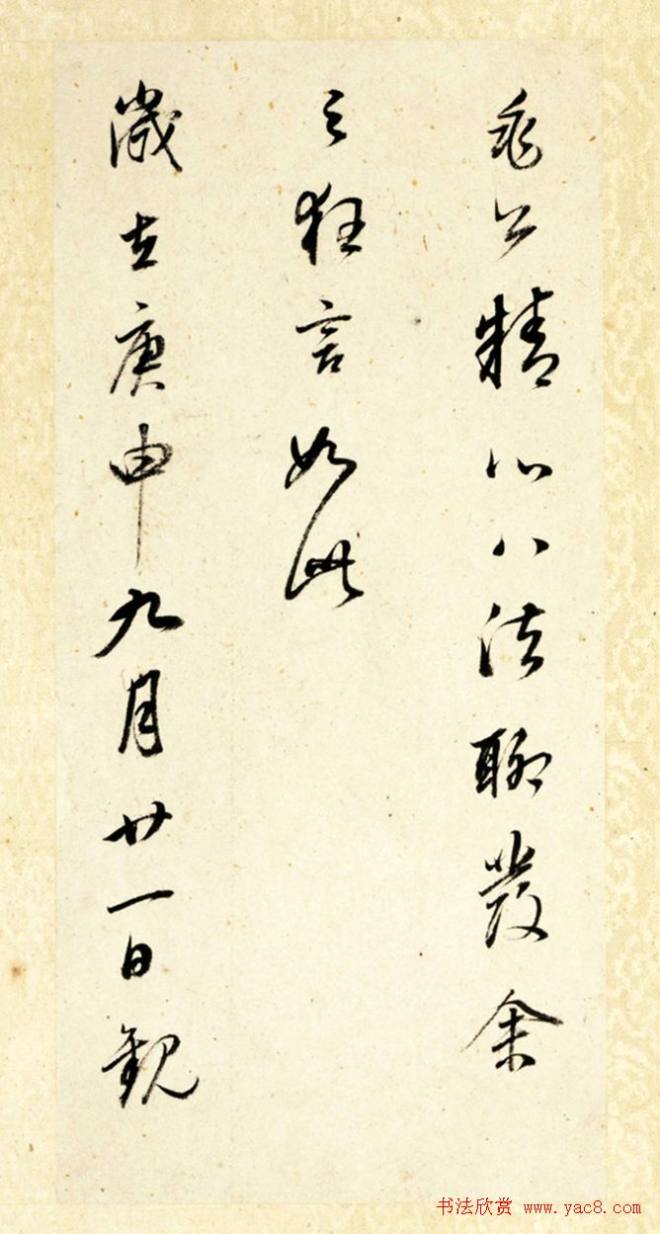 公精心八法聊發余
之狂言如此
歲在庚申九月廿一日觀
书法欣赏 www.yac8.com